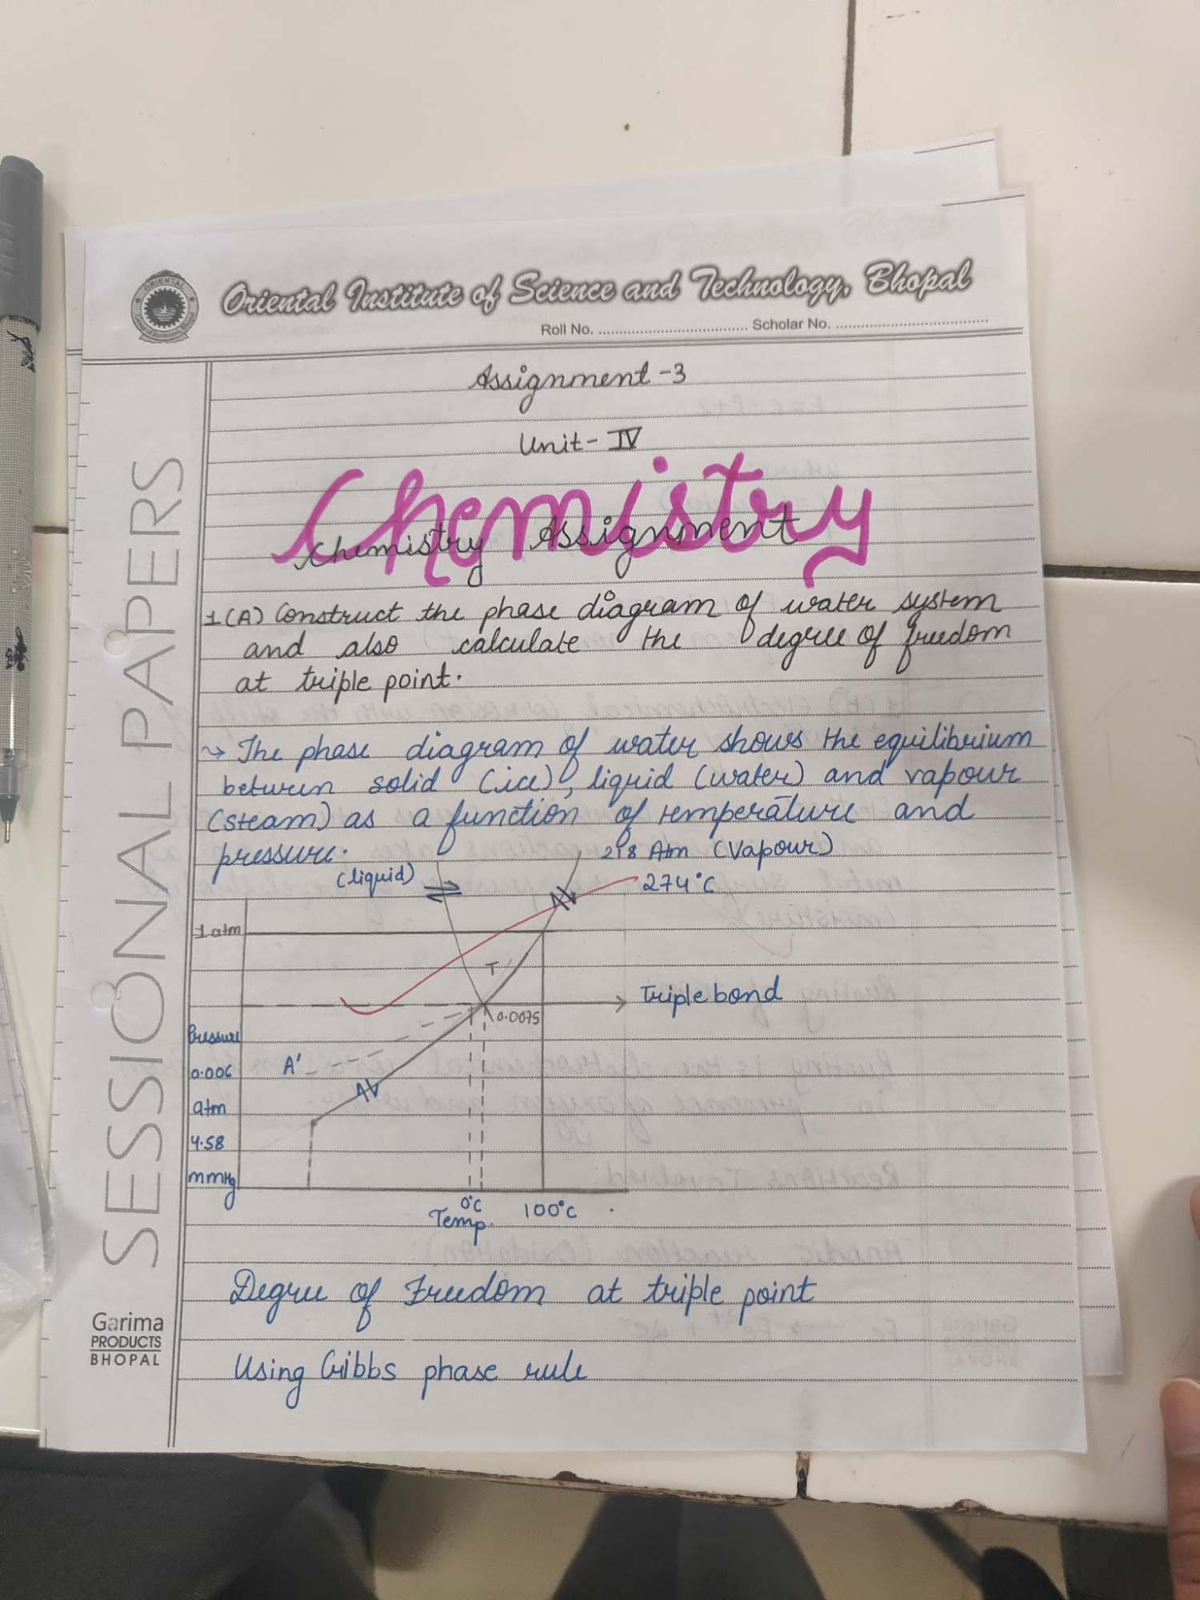 Oriental Institute of Science and Technology, Bhopal
Roll No. .................................. Scholar No. ..................................
Assignment-3
Unit-IV
Chemistry
Chemistry Assignment
1(A) Construct the phase diagram of water system
and also calculate the degree of freedom
at triple point.
~> The phase diagram of water shows the equilibrium
between solid (ice), liquid (water) and vapour
(steam) as a function of temperature and
pressure.
218 Atm (Vapour)
(liquid) ⇌
274°C
1 atm
T
Triple bond
0.0075
Pressure
0.006
atm
4.58
mmHg
A'
0°C
Temp.
100°C
Degree of Freedom at triple point
Using Gibbs phase rule
SESSIONAL PAPERS
Garima
PRODUCTS
BHOPAL